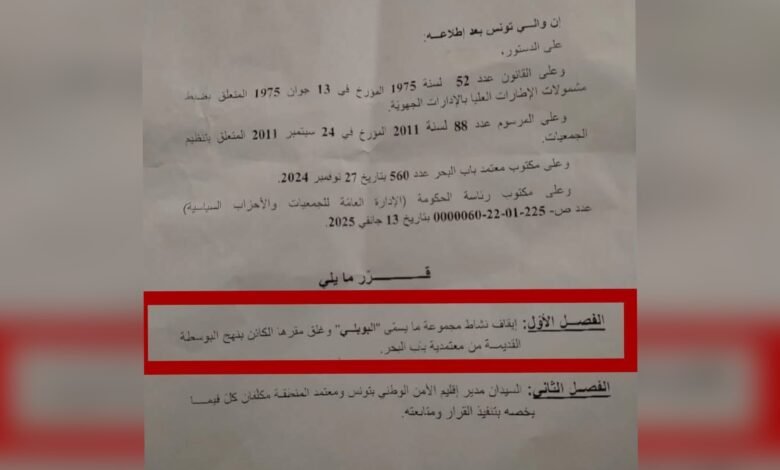 إن والـــي تونس بعد إطلاعـــه:
على الدستور،
وعلى القانون عدد 52 لسنة 1975 المؤرخ في 13 جوان 1975 المتعلق بضبط
مشمولات الإطارات العليا بالإدارات الجهوية.
وعلى المرسوم عدد 88 لسنة 2011 المؤرخ في 24 سبتمبر 2011 المتعلق بتنظيم
الجمعيات.
وعلى مكتوب معتمد باب البحر عدد 560 بتاريخ 27 نوفمبر 2024.
وعلى مكتوب رئاسة الحكومة (الإدارة العامّة للجمعيات والأحزاب السياسية)
عدد ص- 225-01-22-0000060 بتاريخ 13 جانفي 2025.
قـــــــرّر ما يلي
الفصـــل الأوّل: إيقاف نشاط مجموعة ما يسمّى "البويلي" وغلق مقرها الكائن بنهج البوسطة
القديمـــة من معتمدية باب البحر.
الفصـــل الثاني: السيدان مدير إقليم الأمن الوطني بتونس ومعتمد المنطقة مكلّفان كلّ فيمـــا
يخصه بتنفيذ القرار ومتابعته.